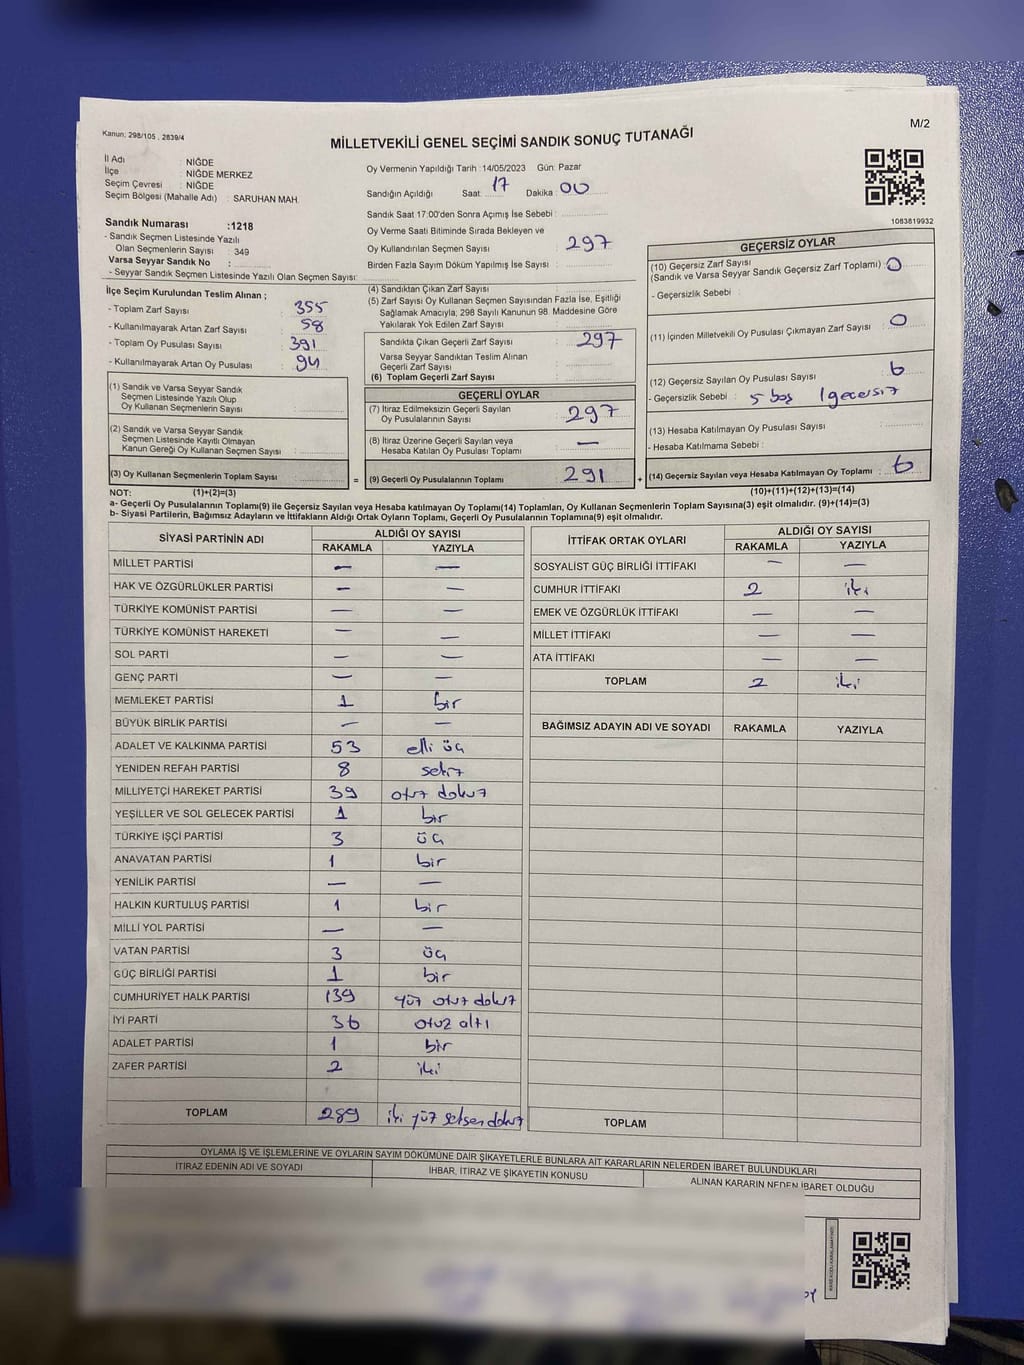 Kanun: 298/105 , 2839/4
MİLLETVEKİLİ GENEL SEÇİMİ SANDIK SONUÇ TUTANAĞI
M/2
İl Adı : NİĞDE
İlçe : NİĞDE MERKEZ
Seçim Çevresi : NİĞDE
Seçim Bölgesi (Mahalle Adı) : SARUHAN MAH.
Oy Vermenin Yapıldığı Tarih : 14/05/2023 Gün: Pazar
Sandığın Açıldığı Saat 17 Dakika : 00
Sandık Saat 17:00'den Sonra Açılmış İse Sebebi :
Oy Verme Saati Bitiminde Sırada Bekleyen ve
Oy Kullandırılan Seçmen Sayısı : 297
Birden Fazla Sayım Döküm Yapılmış İse Sayısı :
1083819932
Sandık Numarası :1218
- Sandık Seçmen Listesinde Yazılı
Olan Seçmenlerin Sayısı : 349
Varsa Seyyar Sandık No :
- Seyyar Sandık Seçmen Listesinde Yazılı Olan Seçmen Sayısı:
İlçe Seçim Kurulundan Teslim Alınan ;
- Toplam Zarf Sayısı : 355
- Kullanılmayarak Artan Zarf Sayısı : 58
- Toplam Oy Pusulası Sayısı : 391
- Kullanılmayarak Artan Oy Pusulası : 94
(1) Sandık ve Varsa Seyyar Sandık
Seçmen Listesinde Yazılı Olup
Oy Kullanan Seçmenlerin Sayısı :
(2) Sandık ve Varsa Seyyar Sandık
Seçmen Listesinde Kayıtlı Olmayan
Kanun Gereği Oy Kullanan Seçmen Sayısı :
(3) Oy Kullanan Seçmenlerin Toplam Sayısı :
(4) Sandıktan Çıkan Zarf Sayısı :
(5) Zarf Sayısı Oy Kullanan Seçmen Sayısından Fazla İse, Eşitliği
Sağlamak Amacıyla; 298 Sayılı Kanunun 98. Maddesine Göre
Yakılarak Yok Edilen Zarf Sayısı :
Sandıkta Çıkan Geçerli Zarf Sayısı : 297
Varsa Seyyar Sandıktan Teslim Alınan
Geçerli Zarf Sayısı :
(6) Toplam Geçerli Zarf Sayısı :
GEÇERLİ OYLAR
(7) İtiraz Edilmeksizin Geçerli Sayılan
Oy Pusulalarının Sayısı : 297
(8) İtiraz Üzerine Geçerli Sayılan veya
Hesaba Katılan Oy Pusulası Toplamı : —
= (9) Geçerli Oy Pusulalarının Toplamı : 291 +
GEÇERSİZ OYLAR
(10) Geçersiz Zarf Sayısı
(Sandık ve Varsa Seyyar Sandık Geçersiz Zarf Toplamı) : 0
- Geçersizlik Sebebi :
(11) İçinden Milletvekili Oy Pusulası Çıkmayan Zarf Sayısı : 0
(12) Geçersiz Sayılan Oy Pusulası Sayısı : 6
- Geçersizlik Sebebi : 5 boş 1 geçersiz
(13) Hesaba Katılmayan Oy Pusulası Sayısı :
- Hesaba Katılmama Sebebi :
(14) Geçersiz Sayılan veya Hesaba Katılmayan Oy Toplamı : 6
NOT: (1)+(2)=(3) (10)+(11)+(12)+(13)=(14)
a- Geçerli Oy Pusulalarının Toplamı(9) ile Geçersiz Sayılan veya Hesaba katılmayan Oy Toplamı(14) Toplamları, Oy Kullanan Seçmenlerin Toplam Sayısına(3) eşit olmalıdır. (9)+(14)=(3)
b- Siyasi Partilerin, Bağımsız Adayların ve İttifakların Aldığı Ortak Oyların Toplamı, Geçerli Oy Pusulalarının Toplamına(9) eşit olmalıdır.
SİYASİ PARTİNİN ADI ALDIĞI OY SAYISI
RAKAMLA YAZIYLA
MİLLET PARTİSİ — —
HAK VE ÖZGÜRLÜKLER PARTİSİ — —
TÜRKİYE KOMÜNİST PARTİSİ — —
TÜRKİYE KOMÜNİST HAREKETİ — —
SOL PARTİ — —
GENÇ PARTİ — —
MEMLEKET PARTİSİ 1 bir
BÜYÜK BİRLİK PARTİSİ — —
ADALET VE KALKINMA PARTİSİ 53 elli üç
YENİDEN REFAH PARTİSİ 8 sekiz
MİLLİYETÇİ HAREKET PARTİSİ 39 otuz dokuz
YEŞİLLER VE SOL GELECEK PARTİSİ 1 bir
TÜRKİYE İŞÇİ PARTİSİ 3 üç
ANAVATAN PARTİSİ 1 bir
YENİLİK PARTİSİ — —
HALKIN KURTULUŞ PARTİSİ 1 bir
MİLLİ YOL PARTİSİ — —
VATAN PARTİSİ 3 üç
GÜÇ BİRLİĞİ PARTİSİ 1 bir
CUMHURİYET HALK PARTİSİ 139 yüz otuz dokuz
İYİ PARTİ 36 otuz altı
ADALET PARTİSİ 1 bir
ZAFER PARTİSİ 2 iki
TOPLAM 289 iki yüz seksen dokuz
İTTİFAK ORTAK OYLARI ALDIĞI OY SAYISI
RAKAMLA YAZIYLA
SOSYALİST GÜÇ BİRLİĞİ İTTİFAKI — —
CUMHUR İTTİFAKI 2 iki
EMEK VE ÖZGÜRLÜK İTTİFAKI — —
MİLLET İTTİFAKI — —
ATA İTTİFAKI — —
TOPLAM 2 iki
BAĞIMSIZ ADAYIN ADI VE SOYADI RAKAMLA YAZIYLA
TOPLAM
OYLAMA İŞ VE İŞLEMLERİNE VE OYLARIN SAYIM DÖKÜMÜNE DAİR ŞİKAYETLERLE BUNLARA AİT KARARLARIN NELERDEN İBARET BULUNDUKLARI
İTİRAZ EDENİN ADI VE SOYADI İHBAR, İTİRAZ VE ŞİKAYETİN KONUSU ALINAN KARARIN NEDEN İBARET OLDUĞU